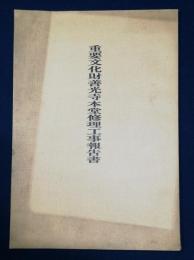 重要文化財善光寺本堂修理工事報告書